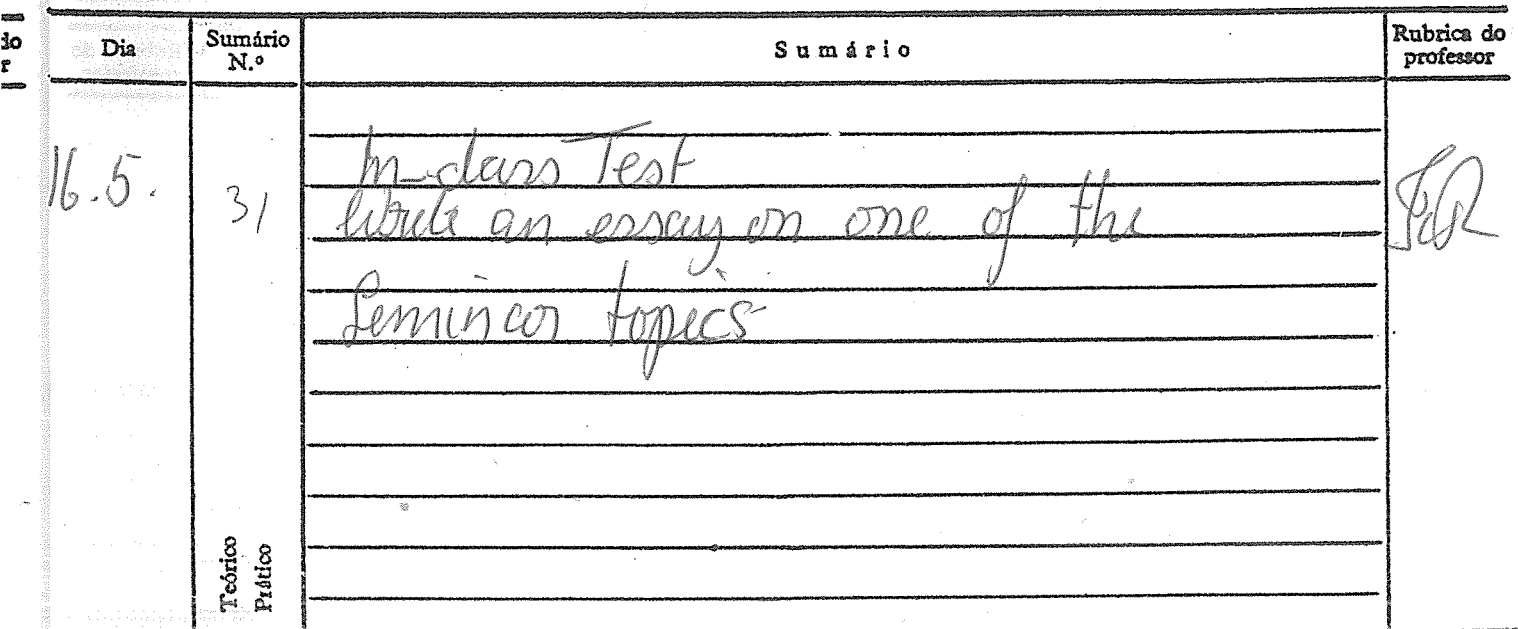 do
r
Dia
Sumário
N.º
Sumário
Rubrica do
professor
16.5.
31
In-class Test
Write an essay on one of the
Seminar topics
Teórico
Prático